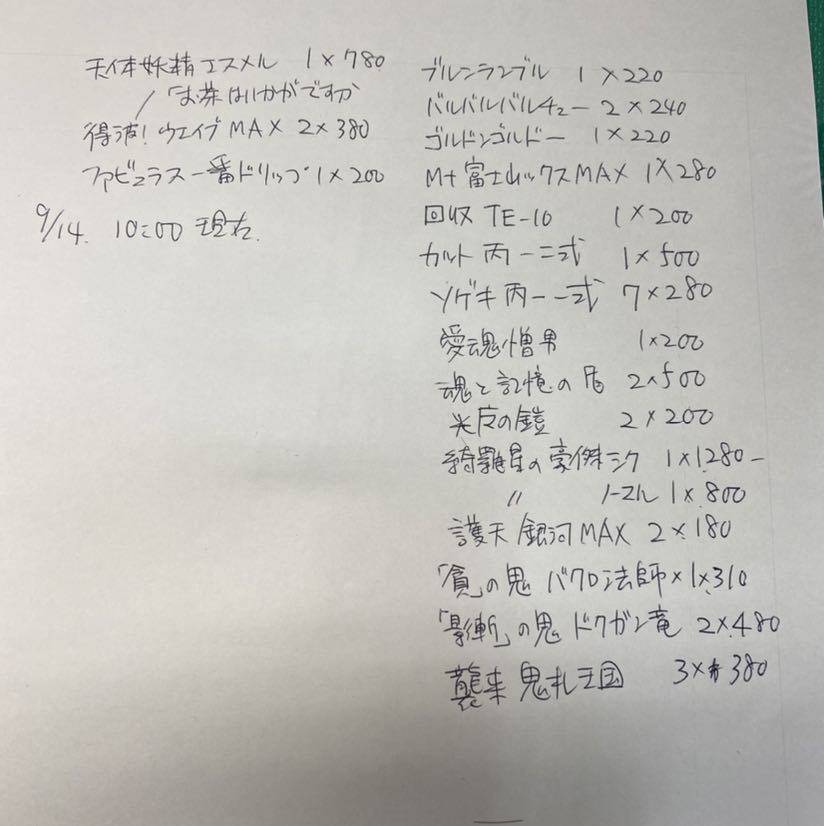 天体妖精エスメル 1×780
「お茶はいかがですか
得波!ウェイブMAX 2×380
ファビュラス一番ドリップ 1×200
9/14. 10:00 現在.
ブルンランブル 1×220
バルバルバルチュー 2×240
ゴルドンゴルドー 1×220
Mt富士山ックスMAX 1×280
回収 TE-10 1×200
カット 丙-二式 1×500
ソゲキ 丙-一式 7×280
愛魂憎男 1×200
魂と記憶の盾 2×500
光の鎧 2×200
綺羅星の豪傑 シク 1×1280-
〃 ノーマル 1×800
護天!銀河MAX 2×180
「貪」の鬼 バクロ法師×1×310
「影斬」の鬼 ドクガン竜 2×480
襲来 鬼札王国 3×380